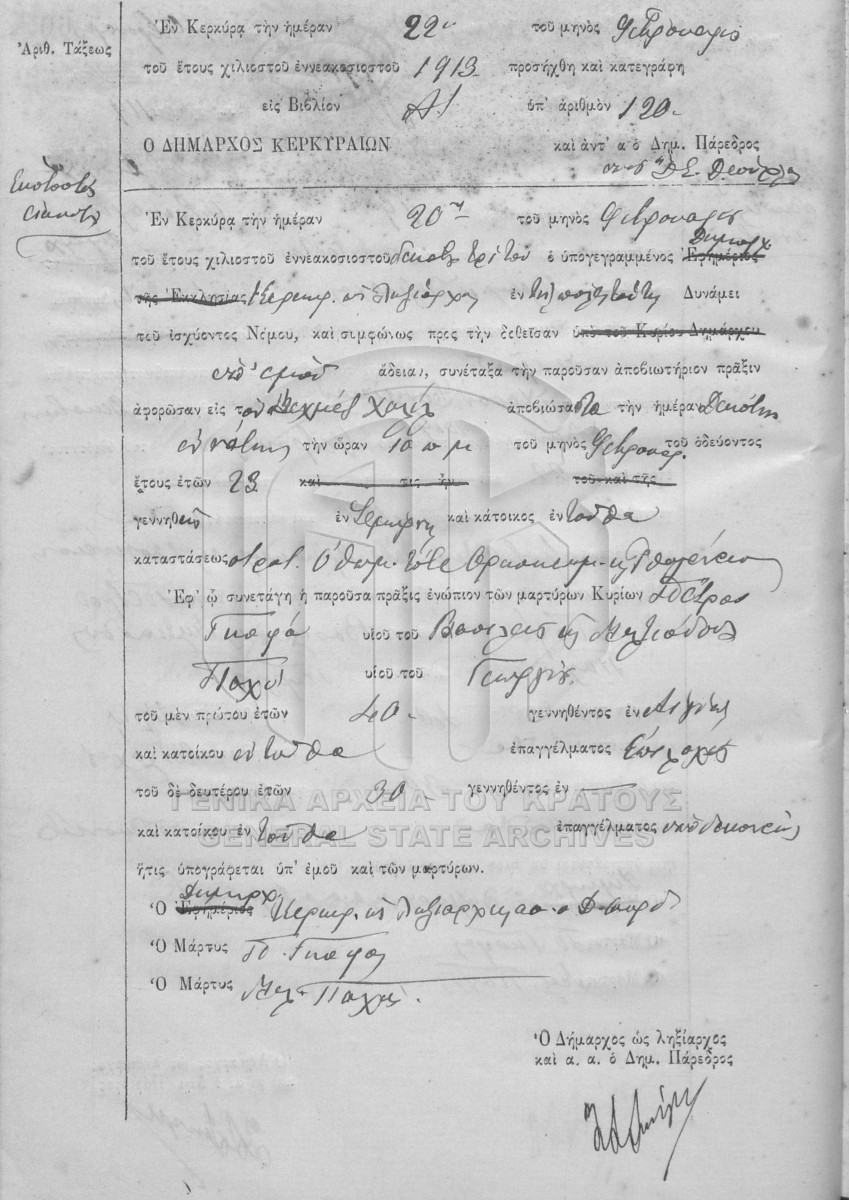 Ἐν Κερκύρᾳ τὴν ἡμέραν 22αν τοῦ μηνὸς Φεβρουαρίο
Ἀριθ. Τάξεως
τοῦ ἔτους χιλιοστοῦ ἐννεακοσιοστοῦ 1913 προσήχθη καὶ κατεγράφη
εἰς Βιβλίον Α' ὑπ' ἀριθμὸν 120
Ο ΔΗΜΑΡΧΟΣ ΚΕΡΚΥΡΑΙΩΝ καὶ ἀντ' α ὁ Δημ. Πάρεδρος
Ἑκατοστὸς εἰκοστὸς
Ἐν Κερκύρᾳ τὴν ἡμέραν 20ην τοῦ μηνὸς Φεβρουαρίου
τοῦ ἔτους χιλιοστοῦ ἐννεακοσιοστοῦ δεκάτου τρίτου ὁ ὑπογεγραμμένος Δήμαρχ Ἐφημέριος
τῆς Ἐκκλησίας Κερκυρ. ὡς Ληξίαρχος ἐν τῇ πόλει ταύτῃ Δυνάμει
τοῦ ἰσχύοντος Νόμου, καὶ συμφώνως πρὸς τὴν δοθεῖσαν ὑπὸ τοῦ Κυρίου Δημάρχου
ὑπ' ἐμοῦ ἄδειαν, συνέταξα τὴν παροῦσαν ἀποβιωτήριον πρᾶξιν
ἀφορῶσαν εἰς τὸν Μεχμὲτ Χαλὴλ ἀποβιώσαντα τὴν ἡμέραν Δεκάτην
ἐννάτην τὴν ὥραν 10 π μ τοῦ μηνὸς Φεβρουαρ. τοῦ ὁδεύοντος
ἔτους ἐτῶν 23 καὶ τις ἦν τοῦ καὶ τῆς
γεννηθεὶς ἐν καὶ κάτοικος ἐνταῦθα
καταστάσεως στρατ. Ὀθωμ.
Ἐφ' ᾧ συνετάγη ἡ παροῦσα πρᾶξις ἐνώπιον τῶν μαρτύρων Κυρίων Πέτρου
Γκαφᾶ υἱοῦ τοῦ Βασιλείου κ Μιλτιάδου
Παχῆ υἱοῦ τοῦ Γεωργίου
τοῦ μὲν πρώτου ἐτῶν 40 γεννηθέντος ἐν
καὶ κατοίκου ἐνταῦθα ἐπαγγέλματος
τοῦ δὲ δευτέρου ἐτῶν 30 γεννηθέντος ἐν —
ΓΕΝΙΚΑ ΑΡΧΕΙΑ ΤΟΥ ΚΡΑΤΟΥΣ
καὶ κατοίκου ἐνταῦθα ἐπαγγέλματος
GENERAL STATE ARCHIVES
ἥτις ὑπογράφεται ὑπ' ἐμοῦ καὶ τῶν μαρτύρων.
Ὁ Δήμαρχ Ἐφημέριος Κερκυρ. ὡς Ληξίαρχος
Ὁ Μάρτυς Π. Γκαφᾶς
Ὁ Μάρτυς Μιλ. Παχῆς.
Ὁ Δήμαρχος ὡς ληξίαρχος
καὶ α. α. ὁ Δημ. Πάρεδρος